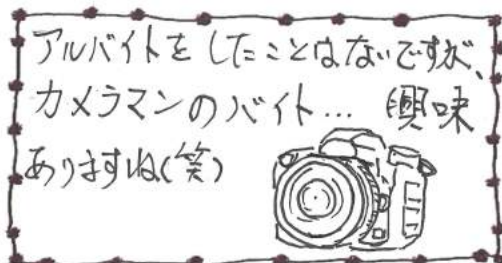 アルバイトをしたことはないですが、
カメラマンのバイト… 興味
ありますね(笑)